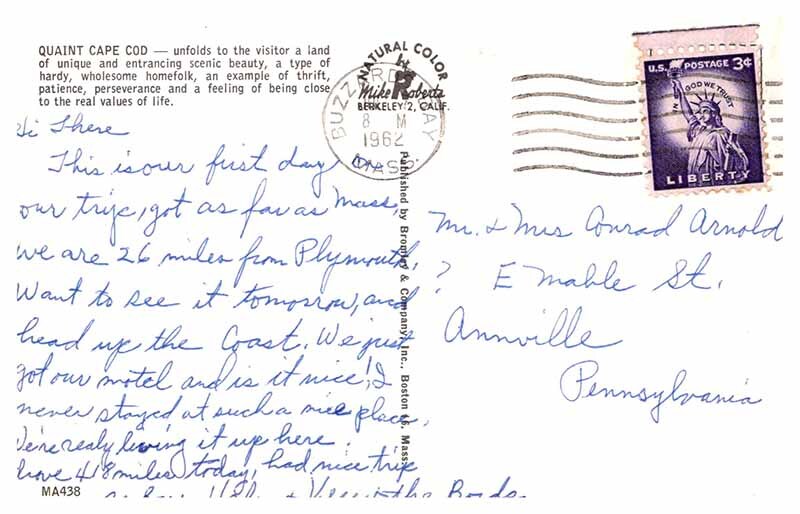 QUAINT CAPE COD — unfolds to the visitor a land
of unique and entrancing scenic beauty, a type of
hardy, wholesome homefolk, an example of thrift,
patience, perseverance and a feeling of being close
to the real values of life.
Hi There
This is our first day on
our trip, got as far as Mass.
we are 26 miles from Plymouth.
Want to see it tomorrow, and
head up the Coast. We just
got our motel and is it nice! I
never stayed at such a nice place.
We're realy living it up here.
Drove 418 miles today, had nice trip
MA438
NATURAL COLOR
by
Mike Roberts
BERKELEY 2, CALIF.
BUZZARDS BAY
8 M
1962
MASS.
Published by Bromley & Company, Inc., Boston 16, Mass.
U.S. POSTAGE 3¢
IN GOD WE TRUST
LIBERTY
Mr. & Mrs Conrad Arnold
? E Mable St.
Annville
Pennsylvania